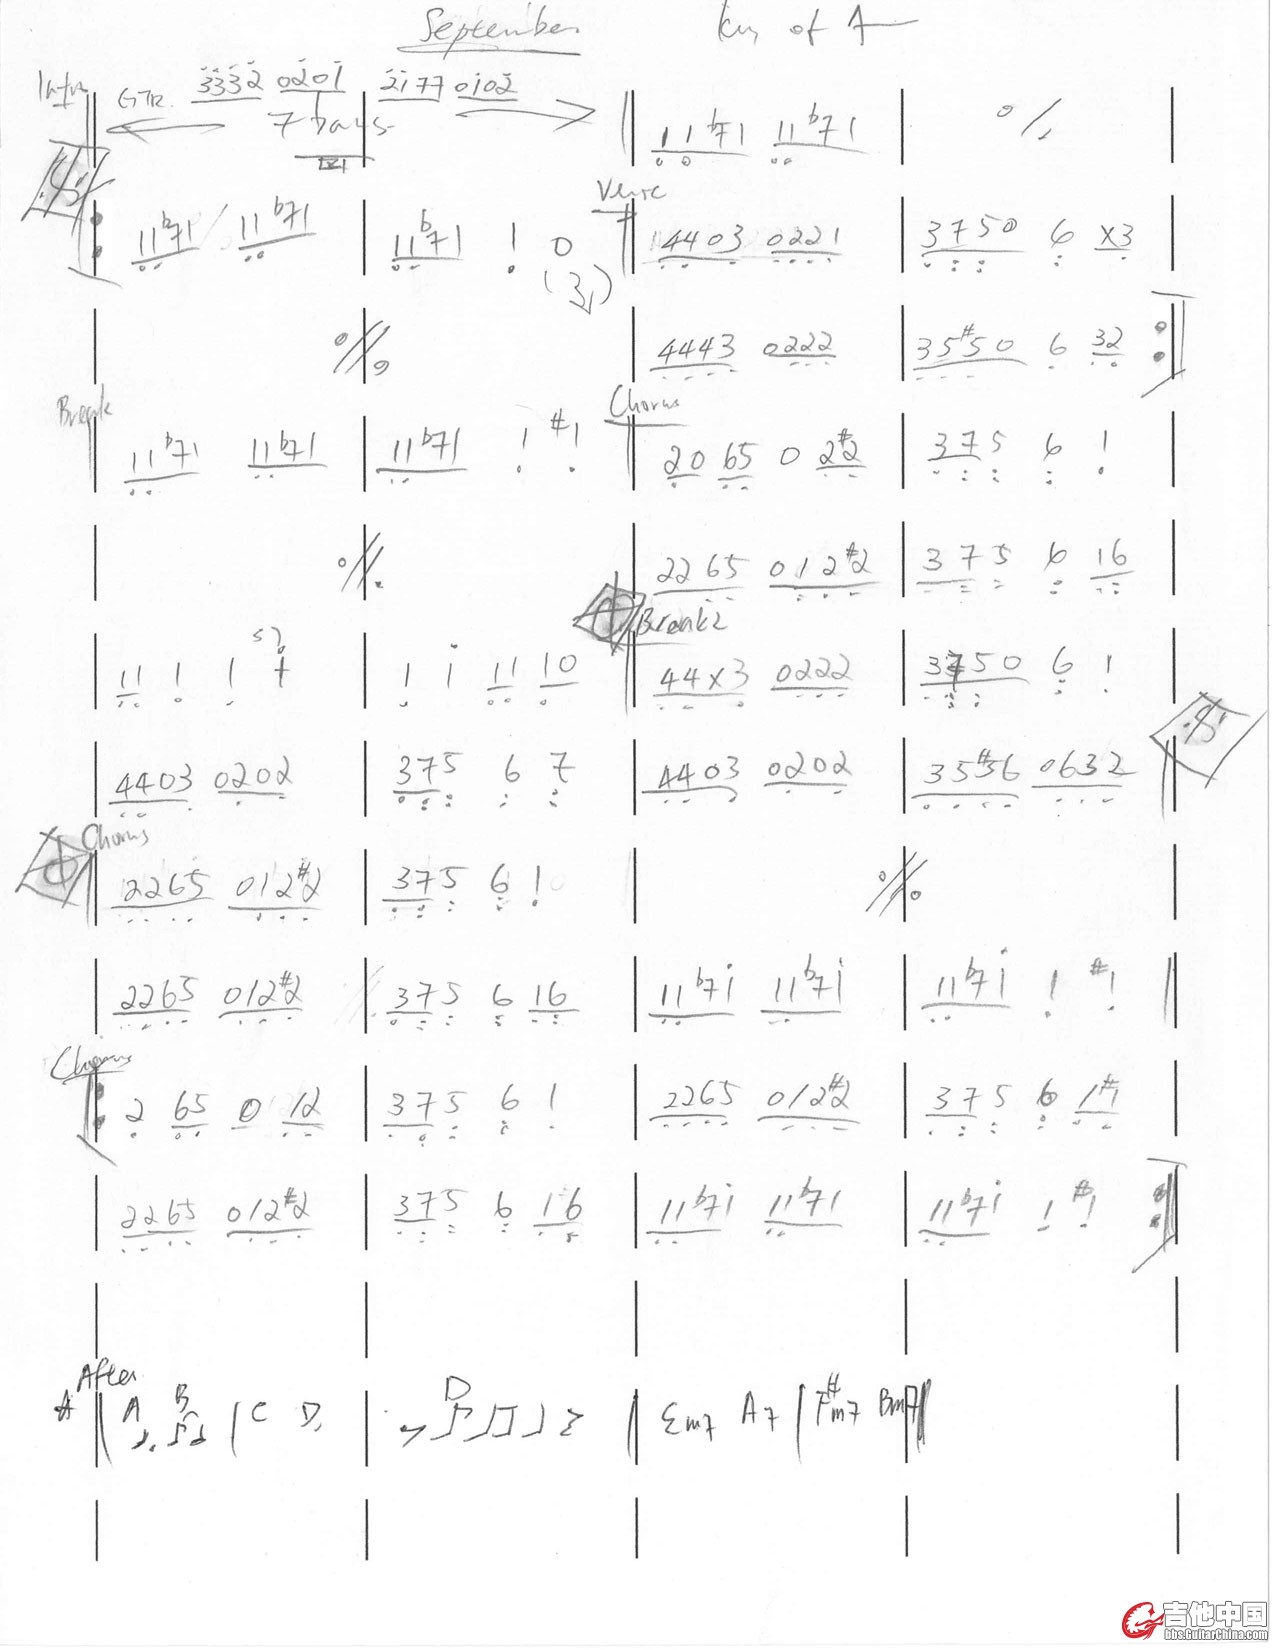 September Key of A
Intro GTR. 3332 0201 2177 0102
7 bars
11b71 11b71 %
Verse
11b71 11b71 11b71 1 0 4403 0221 3750 6 x3
(3)
% 4443 0222 35#50 6 32
Break Chorus
11b71 11b71 11b71 1 #1 2065 0 2#2 375 6 1
% 2265 012#2 375 6 16
Break2
11 1 1 1 i 11 10 44x3 0222 3750 6 1
4403 0202 375 6 7 4403 0202 35#56 0632
Chorus
2265 012#2 375 6 1 %
2265 012#2 375 6 16 11b7i 11b7i 11b7i 1 #1
Chorus
2 65 0 12 375 6 1 2265 012#2 375 6 1#1
2265 012#2 375 6 16 11b7i 11b71 11b7i 1 #1
After
A B | C D D Em7 A7 | F#m7 Bm7
吉他中国
bbs.GuitarChina.com